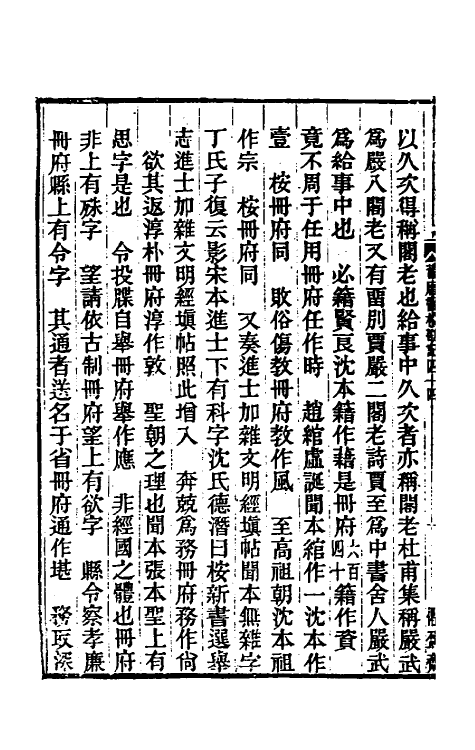 以久次得稱閣老也給事中久次者亦稱閣老杜甫集稱嚴武
爲嚴八閣老又有畱別賈嚴二閣老詩賈至爲中書舍人嚴武
爲給事中也　必籍賢良沈本籍作藉是冊府六百四十籍作資
竟不周于任用冊府任作時　趙綰虛誕聞本綰作一沈本作
壹　桉冊府同　敗俗傷教冊府教作風　至高祖朝沈本祖
作宗　桉冊府同　又奏進士加雜文明經塡帖聞本無雜字
丁氏子復云影宋本進士下有科字沈氏德潛曰桉新書選舉
志進士加雜文明經塡帖照此增入　奔兢爲務冊府務作尙
欲其返淳朴冊府淳作敦　聖朝之理也聞本張本聖上有
思字是也　令投牒自舉冊府舉作應　非經國之體也冊府
非上有殊字　望請依古制冊府望上有欲字　縣令察孝廉
冊府縣上有令字　其通者送名于省冊府通作堪　務取深